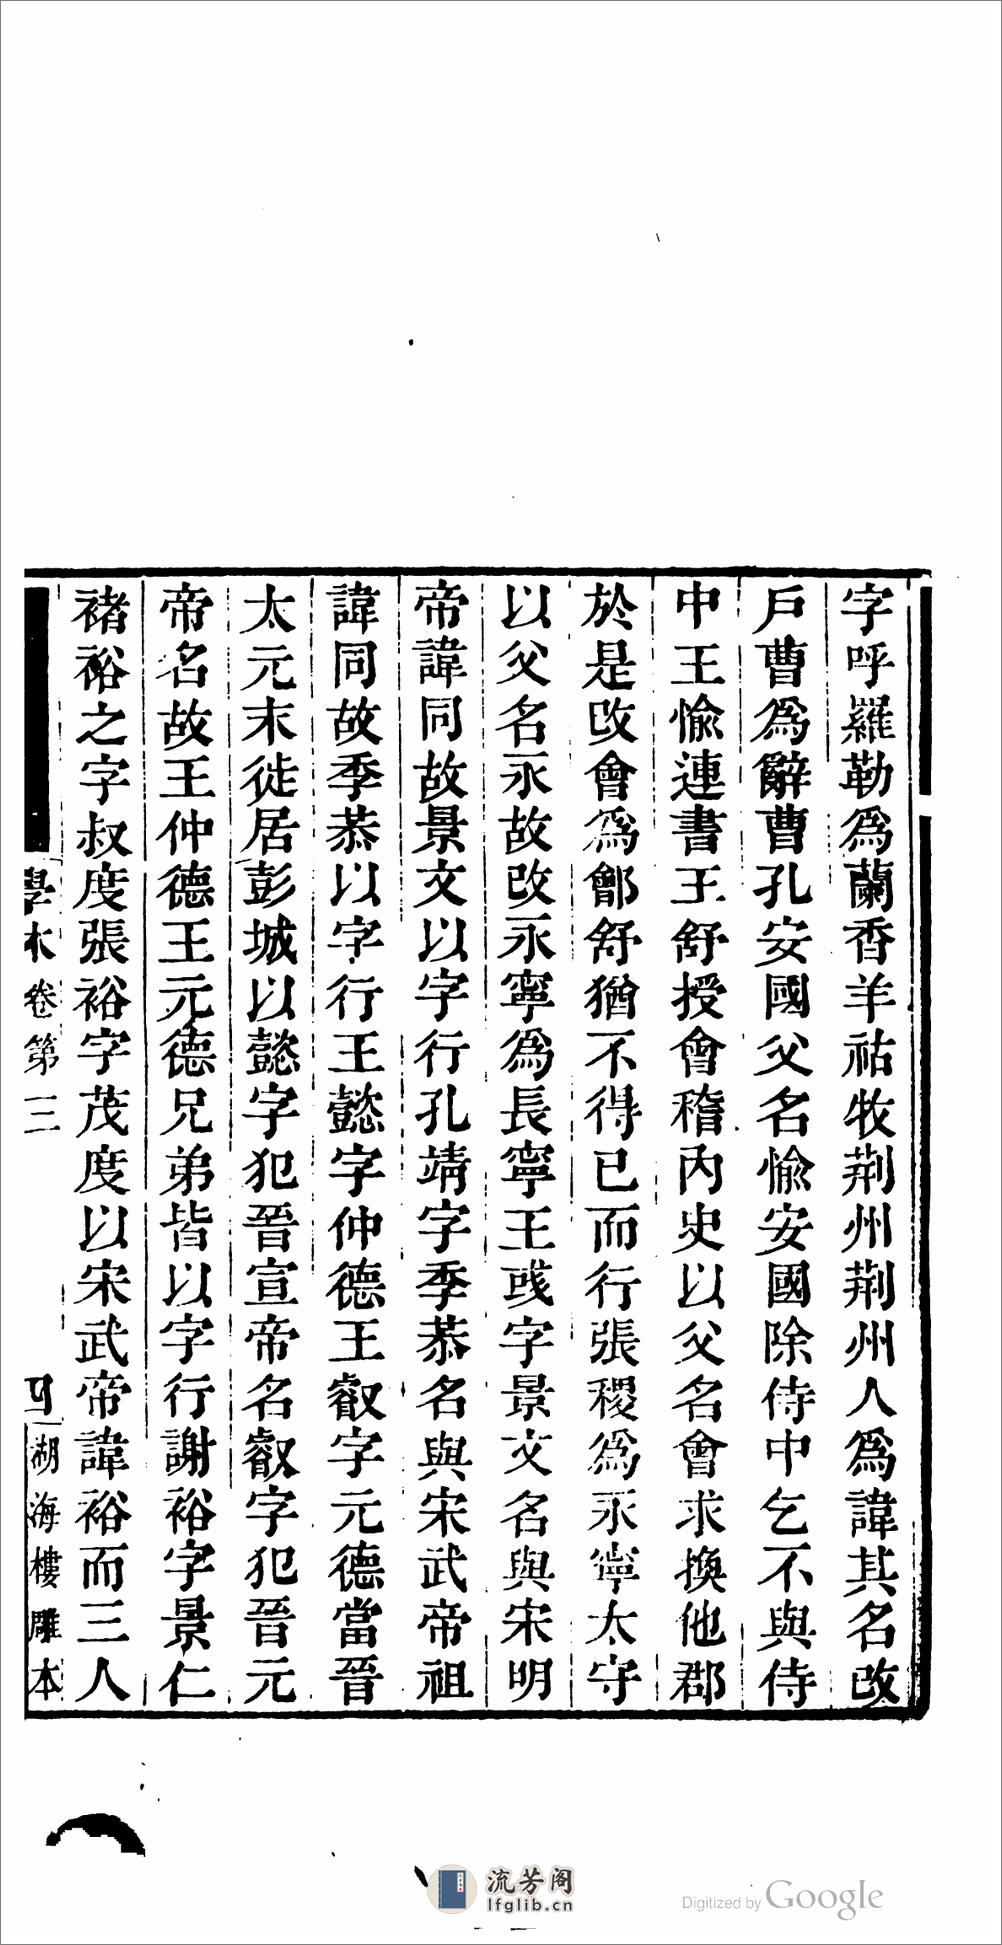 字呼羅勒爲蘭香羊祜牧荆州荆州人爲諱其名改
戶曹爲辭曹孔安國父名愉安國除侍中乞不與侍
中王愉連書王舒授會稽內史以父名會求換他郡
於是改會爲鄶舒猶不得已而行張稷爲永寧太守
以父名永故改永寧爲長寧王彧字景文名與宋明
帝諱同故景文以字行孔靖字季恭名與宋武帝祖
諱同故季恭以字行王懿字仲德王叡字元德當晉
太元末徙居彭城以懿字犯晉宣帝名叡字犯晉元
帝名故王仲德王元德兄弟皆以字行謝裕字景仁
褚裕之字叔度張裕字茂度以宋武帝諱裕而三人
學林 卷第三 四 湖海樓雕本
流芳阁
lfglib.cn
Digitized by Google